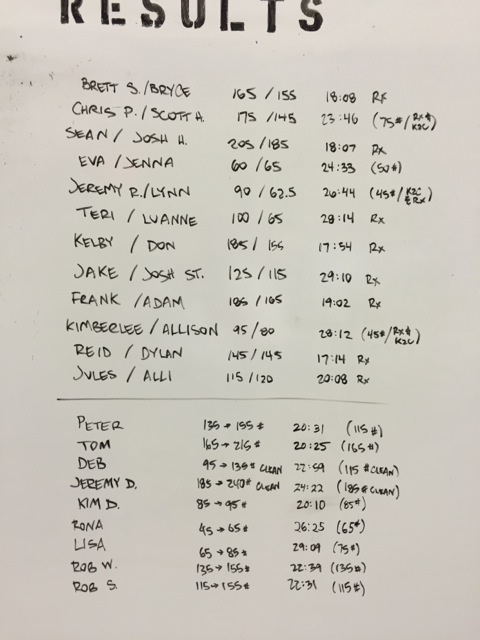 RESULTS
BRETT S./BRYCE 165 / 155 18:08 RX
CHRIS P. / SCOTT H. 175 / 145 23:46 (75# / RX # K2C)
SEAN / JOSH H. 205/185 18:07 RX
EVA / JENNA 60 / 65 24:33 (50#)
JEREMY R./LYNN 90 / 62.5 26:44 (45# / K2C # RX)
TERI / LUANNE 100 / 65 28:14 RX
KELBY / DON 185 / 155 17:54 RX
JAKE / JOSH ST. 125 / 115 29:10 RX
FRANK / ADAM 185 / 165 19:02 RX
KIMBERLEE / ALLISON 95/80 28:12 (45# / RX # K2C)
REID / DYLAN 145 / 145 17:14 RX
JULES / ALLI 115 / 120 20:08 RX
PETER 135 → 155# 20:31 (115#)
TOM 165 → 215# 20:25 (165#)
DEB 95 → 135# CLEAN 22:59 (115# CLEAN)
JEREMY D. 185 → 240# CLEAN 24:22 (185# CLEAN)
KIM D. 85 → 95# 20:10 (85#)
RONA 45 → 65# 26:25 (65#)
LISA 65 → 85# 29:09 (75#)
ROB W. 135 → 155# 22:39 (135#)
ROB S. 115 → 155# 22:31 (115#)